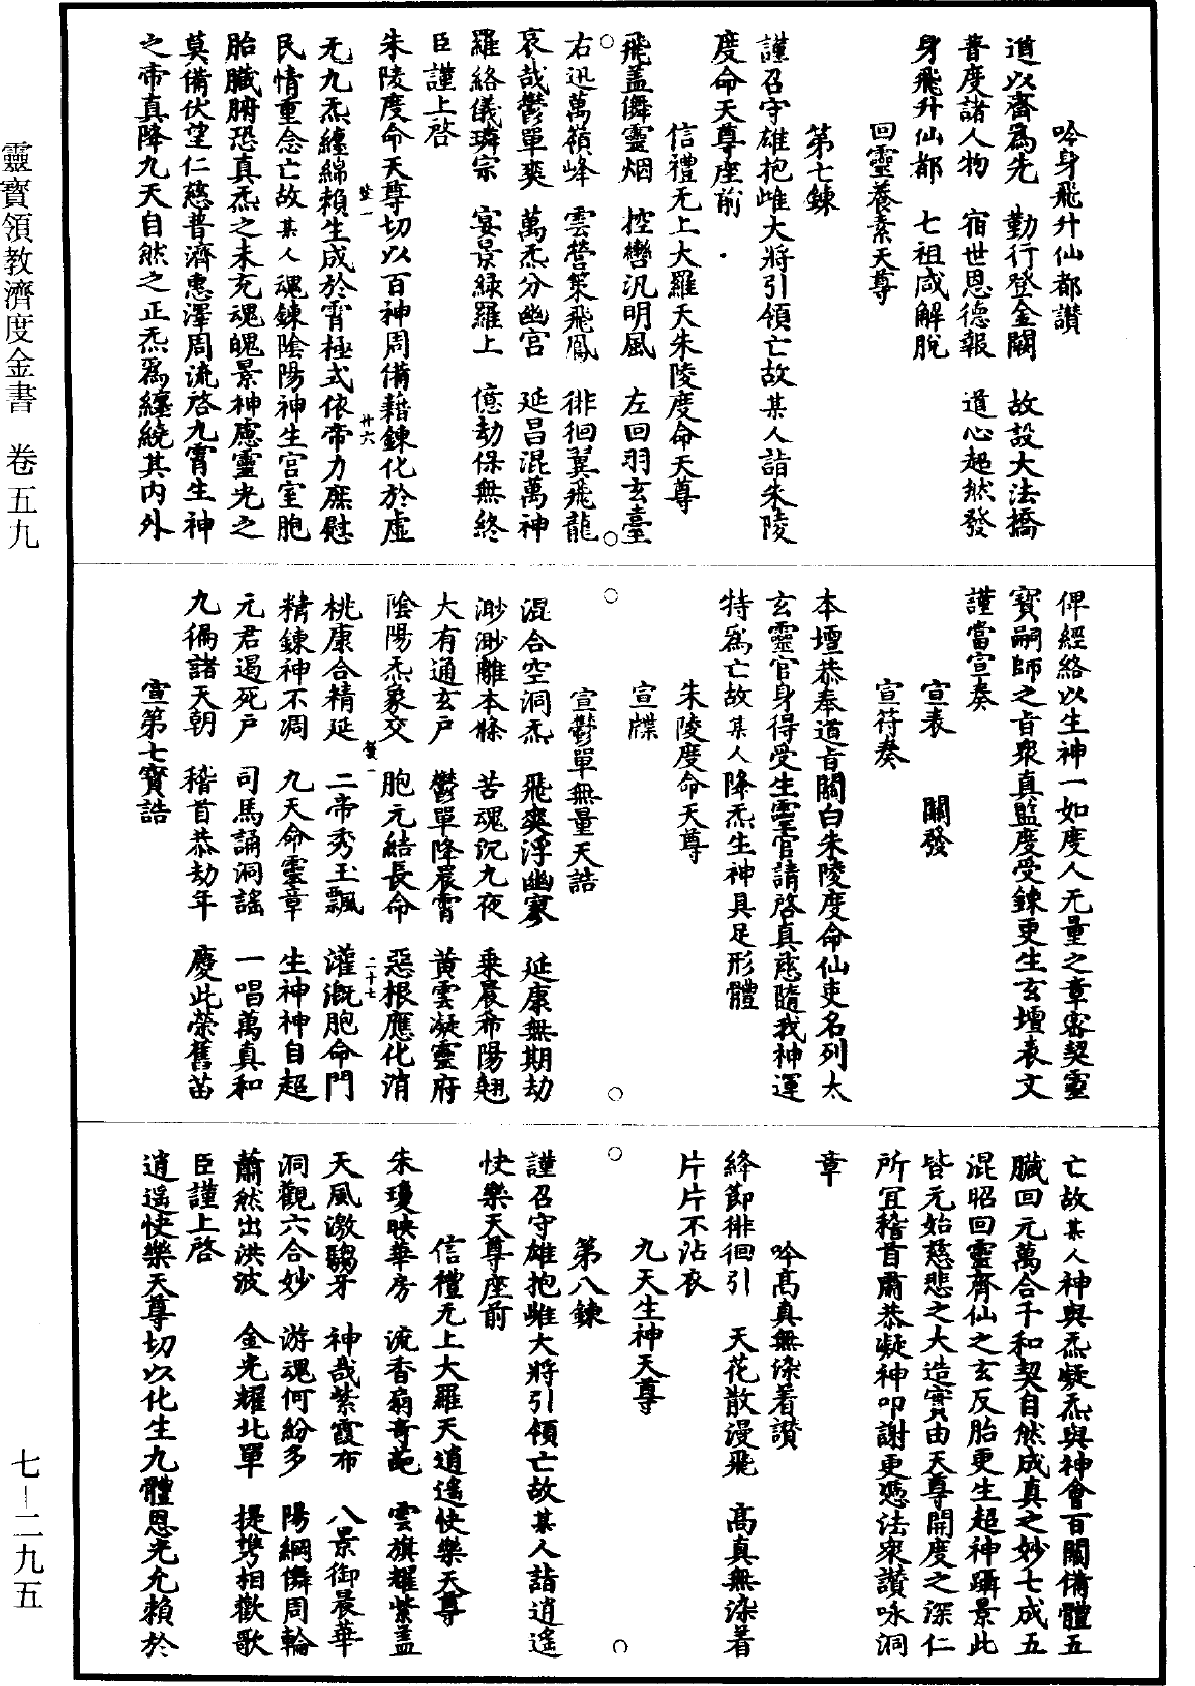 靈寶領教濟度金書　卷五九
七—二九五
吟身飛升仙都讚
道以齋爲先　勤行登金闕　故設大法橋
普度諸人物　宿世恩德報　道心超然發
身飛升仙都　七祖咸解脫
回靈養素天尊
第七鍊
謹召守雄抱雌大將引領亡故某人詣朱陵
度命天尊座前
信禮无上大羅天朱陵度命天尊
飛蓋儛靈烟　控轡汎明風　左回羽玄臺
右迅萬嶺峰　雲營策飛鳳　徘徊翼飛龍
哀哉鬱單爽　萬炁分幽宮　延昌混萬神
羅絡儀璘宗　宴景緑羅上　億劫保無終
臣謹上啓
朱陵度命天尊切以百神周備藉鍊化於虛
无九炁纏綿賴生成於霄極式依帝力庶慰
民情重念亡故某人魂鍊陰陽神生宮室胞
胎臟腑恐真炁之未充魂魄景神慮靈光之
莫備伏望仁慈普濟惠澤周流啓九霄生神
之帝真降九天自然之正炁爲纏繞其內外
俾經絡以生神一如度人无量之章密契靈
寶嗣師之旨衆真監度受鍊更生玄壇表文
謹當宣奏
宣表　關發
宣符奏
本壇恭奉道旨關白朱陵度命仙吏名列太
玄靈官身得受生靈官請啓真慈隨我神運
特爲亡故某人降炁生神具足形體
朱陵度命天尊
宣牒
宣鬱單無量天誥
混合空洞炁　飛爽浮幽寥　延康無期劫
渺渺離本條　苦魂沉九夜　乘晨希陽翹
大有通玄戶　鬱單降晨霄　黃雲凝靈府
陰陽炁象交　胞元結長命　惡根應化消
桃康合精延　二帝秀玉飄　灌溉胞命門
精鍊神不凋　九天命靈章　生神神自超
元君遏死戶　司馬誦洞謠　一唱萬真和
九徧諸天朝　稽首恭劫年　慶此榮舊苗
宣第七寶誥
亡故某人神與炁凝炁與神會百關備體五
臟回元萬合千和契自然成真之妙七成五
混昭回靈齊仙之玄反胎更生超神躡景此
皆元始慈悲之大造實由天尊開度之深仁
所宜稽首肅恭凝神叩謝更憑法衆讚咏洞
章
吟高真無染着讚
絳節徘徊引　天花散漫飛　高真無染着
片片不沾衣
九天生神天尊
第八鍊
謹召守雄抱雌大將引領亡故某人詣逍遙
快樂天尊座前
信禮无上大羅天逍遙快樂天尊
朱瓊映華房　流香扇奇葩　雲旗耀紫蓋
天風激騶牙　神哉紫霞布　八景御晨華
洞觀六合妙　游魂何紛多　陽綱儛周輪
蕭然出洪波　金光耀北單　提㩦相歡歌
臣謹上啓
逍遙快樂天尊切以化生九體恩光允賴於